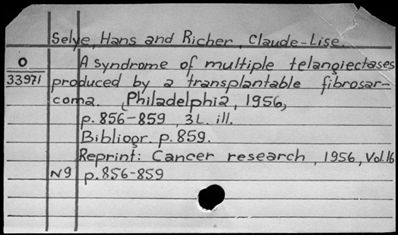 Selye, Hans and Richer, Claude-Lise.
O A syndrome of multiple telangiectases
33971 produced by a transplantable fibrosar-
coma. Philadelphia, 1956,
p. 856-859, 3 L. ill.
Bibliogr. p. 859.
Reprint: Cancer research, 1956, Vol. 16
N9 p. 856-859